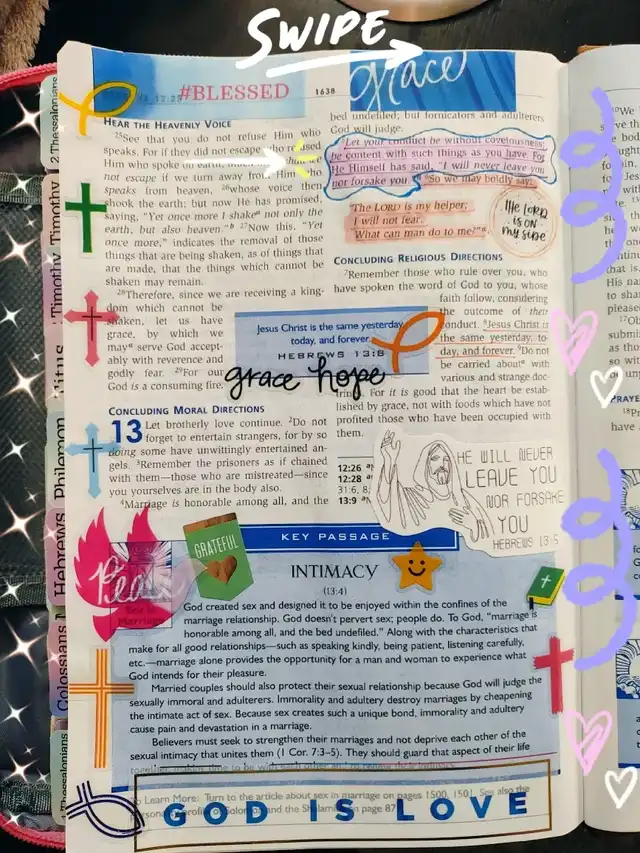 SWIPE
#BLESSED
1638
grace
HEAR THE HEAVENLY VOICE
25See that you do not refuse Him who
speaks. For if they did not escape who refused
Him who spoke on earth,
not escape if we turn away from Him who
speaks from heaven, 26whose voice then
shook the earth; but now He has promised,
saying, "Yet once more I shakeᵃ not only the
earth, but also heaven."ᵇ 27Now this, "Yet
once more," indicates the removal of those
things that are being shaken, as of things that
are made, that the things which cannot be
shaken may remain.
28Therefore, since we are receiving a king-
dom which cannot be
shaken, let us have
grace, by which we
mayᵃ serve God accept-
ably with reverence and
godly fear. 29For our
God is a consuming fire.
CONCLUDING MORAL DIRECTIONS
13 Let brotherly love continue. 2Do not
forget to entertain strangers, for by so
doing some have unwittingly entertained an-
gels. 3Remember the prisoners as if chained
with them—those who are mistreated—since
you yourselves are in the body also.
4Marriage is honorable among all, and the
bed undefiled; but fornicators and adulterers
God will judge.
5Let your conduct be without covetousness;
be content with such things as you have. For
He Himself has said, "I will never leave you
nor forsake you." 6So we may boldly say:
"The LORD is my helper;
I will not fear.
What can man do to me?"
THE LORD
IS ON
MY SIDE
CONCLUDING RELIGIOUS DIRECTIONS
7Remember those who rule over you, who
have spoken the word of God to you, whose
faith follow, considering
the outcome of their
conduct. 8Jesus Christ is
the same yesterday, to-
day, and forever. 9Do not
be carried about with
various and strange doc-
trines. For it is good that the heart be estab-
lished by grace, not with foods which have not
profited those who have been occupied with
them.
Jesus Christ is the same yesterday,
today, and forever.
HEBREWS 13:8
grace hope
12:26
12:28
31:6, 8;
13:9
HE WILL NEVER
LEAVE YOU
NOR FORSAKE
YOU
HEBREWS 13:5
GRATEFUL
KEY PASSAGE
INTIMACY
(13:4)
God created sex and designed it to be enjoyed within the confines of the
marriage relationship. God doesn't pervert sex; people do. To God, "marriage is
honorable among all, and the bed undefiled." Along with the characteristics that
make for all good relationships—such as speaking kindly, being patient, listening carefully,
etc.—marriage alone provides the opportunity for a man and woman to experience what
God intends for their pleasure.
Married couples should also protect their sexual relationship because God will judge the
sexually immoral and adulterers. Immorality and adultery destroy marriages by cheapening
the intimate act of sex. Because sex creates such a unique bond, immorality and adultery
cause pain and devastation in a marriage.
Believers must seek to strengthen their marriages and not deprive each other of the
sexual intimacy that unites them (1 Cor. 7:3–5). They should guard that aspect of their life
together, making time to be with each other and to renew their
To Learn More: Turn to the article about sex in marriage on pages 1500, 1501. See also the
GOD IS LOVE
2 Thessalonians
Timothy
Timothy
Titus
Philemon
Hebrews
Colossians
1 Thessalonians
PRAYE